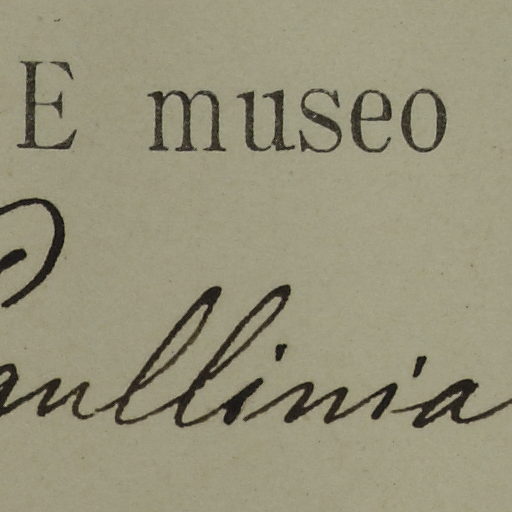 E museo
Paullinia